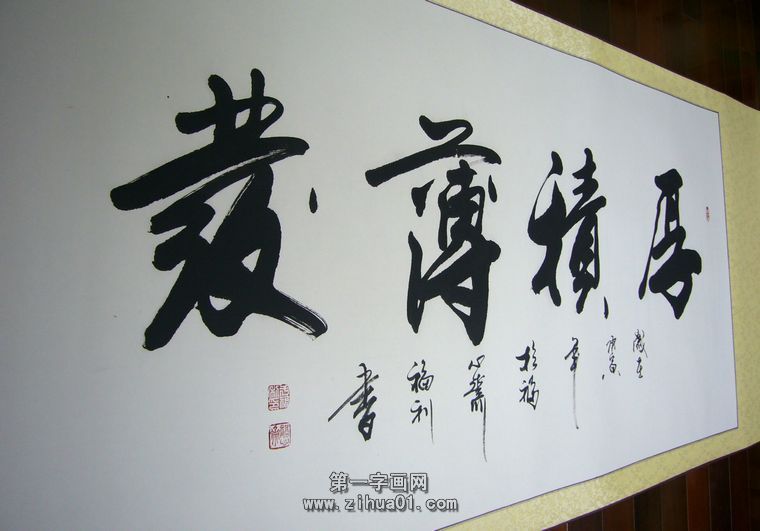 厚積薄發
歲在
庚寅
年
於福
心齋
福利
書
第一字画网
www.zihua01.com